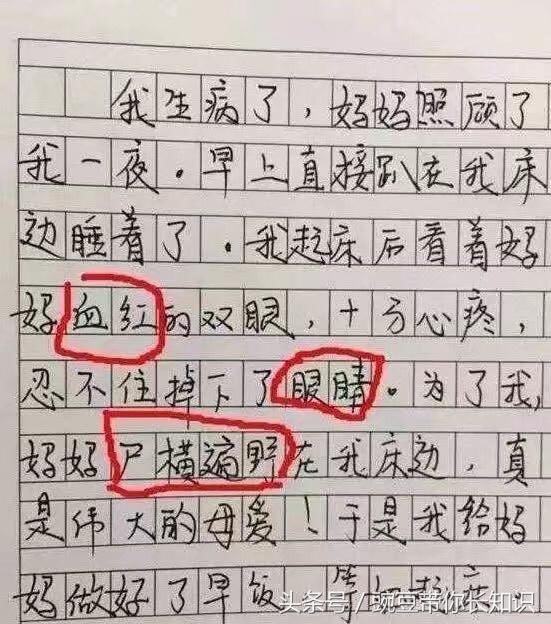 我生病了，妈妈照顾了
我一夜。早上直接趴在我床
边睡着了。我起床后看着妈
妈血红的双眼，十分心疼，
忍不住掉下了眼睛。为了我，
妈妈尸横遍野在我床边，真
是伟大的母爱！于是我给妈
妈做好了早饭
头条号/豌豆带你长知识